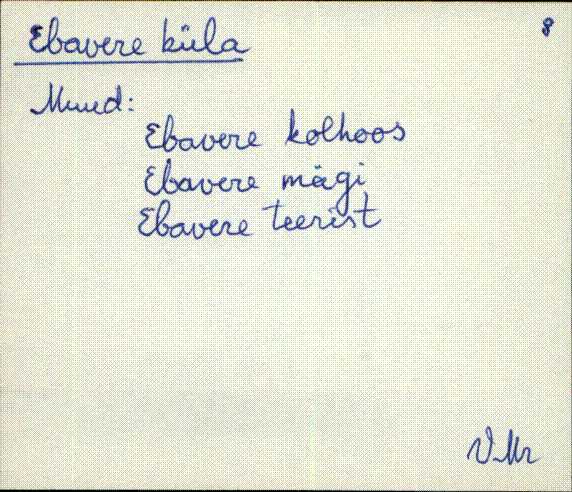 8
Ebavere küla
Muud:
Ebavere kolhoos
Ebavere mägi
Ebavere teerist
V.Mr